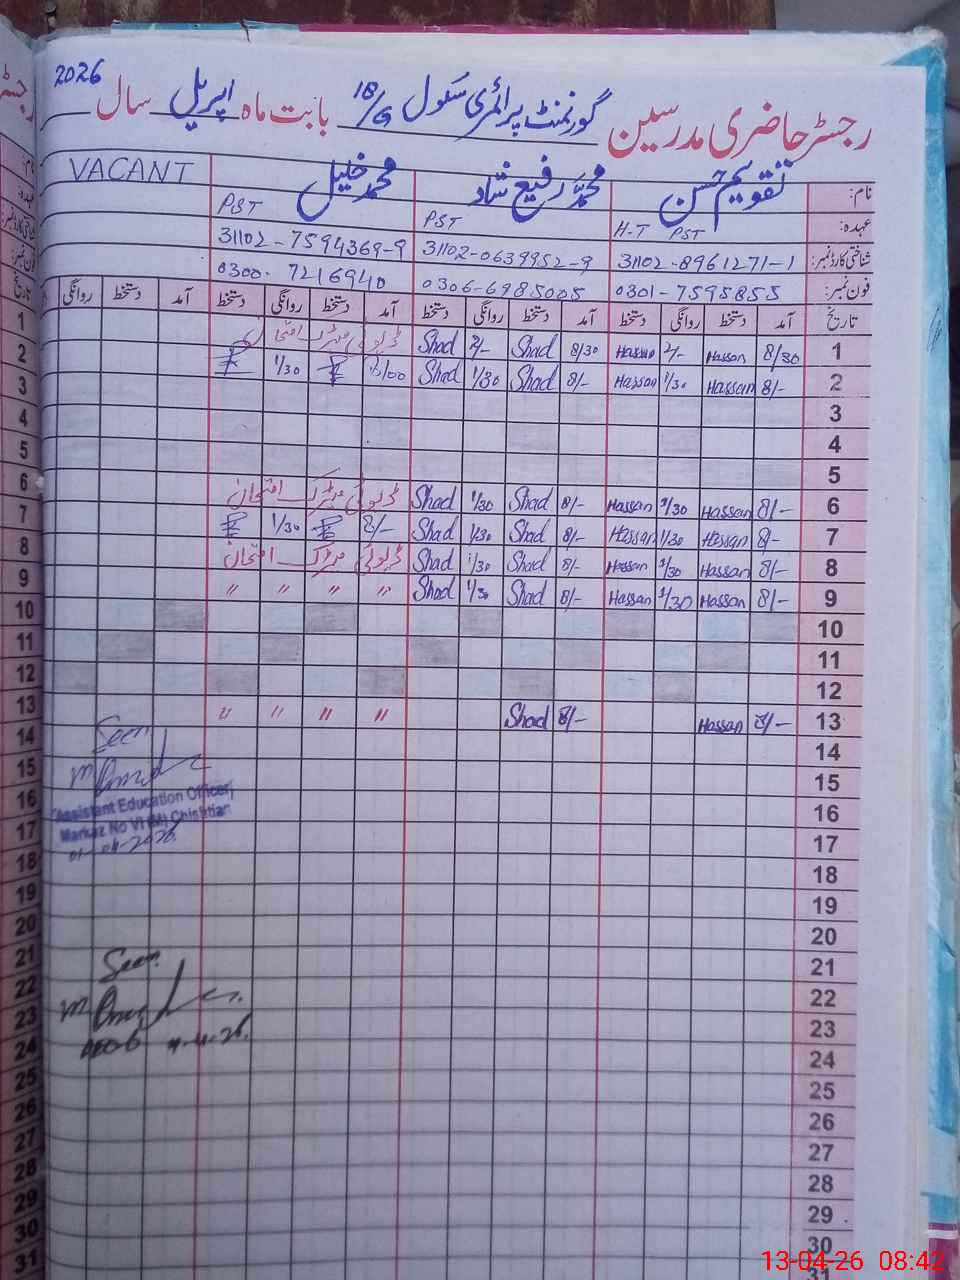 رجسٹر حاضری مدرسین گورنمنٹ پرائمری سکول 18/G بابت ماہ اپریل سال 2026
نام: تقویم حسن محمد رفیع شاد محمد خلیل VACANT
عہدہ: H-T PST PST PST
شناختی کارڈ نمبر: 31102-8961271-1 31102-0639952-9 31102-7594369-9
فون نمبر: 0301-7595855 0306-6985005 0300-7216940
تاریخ آمد دستخط روانگی دستخط آمد دستخط روانگی دستخط آمد دستخط روانگی دستخط آمد دستخط روانگی
1 8/30 Hassan 2/- Hassan 8/30 Shad 2/- Shad ڈیوٹی میٹرک امتحان
2 8/- Hassan 1/30 Hassan 8/- Shad 1/30 Shad 1/30
3
4
5
6 8/- Hassan 1/30 Hassan 8/- Shad 1/30 Shad ڈیوٹی میٹرک امتحان
7 8/- Hassan 1/30 Hassan 8/- Shad 1/30 Shad 8/- 1/30
8 8/- Hassan 1/30 Hassan 8/- Shad 1/30 Shad ڈیوٹی میٹرک امتحان
9 8/- Hassan 1/30 Hassan 8/- Shad 1/30 Shad " " " "
10
11
12
13 8/- Hassan 8/- Shad " " " "
14
15
16
17
18
19
20
21
22
23
24
25
26
27
28
29
30
31
Seen
Assistant Education Officer
Markaz No VI (M) Chishtian
01-04-2026
Seen
13-04-26 08:42